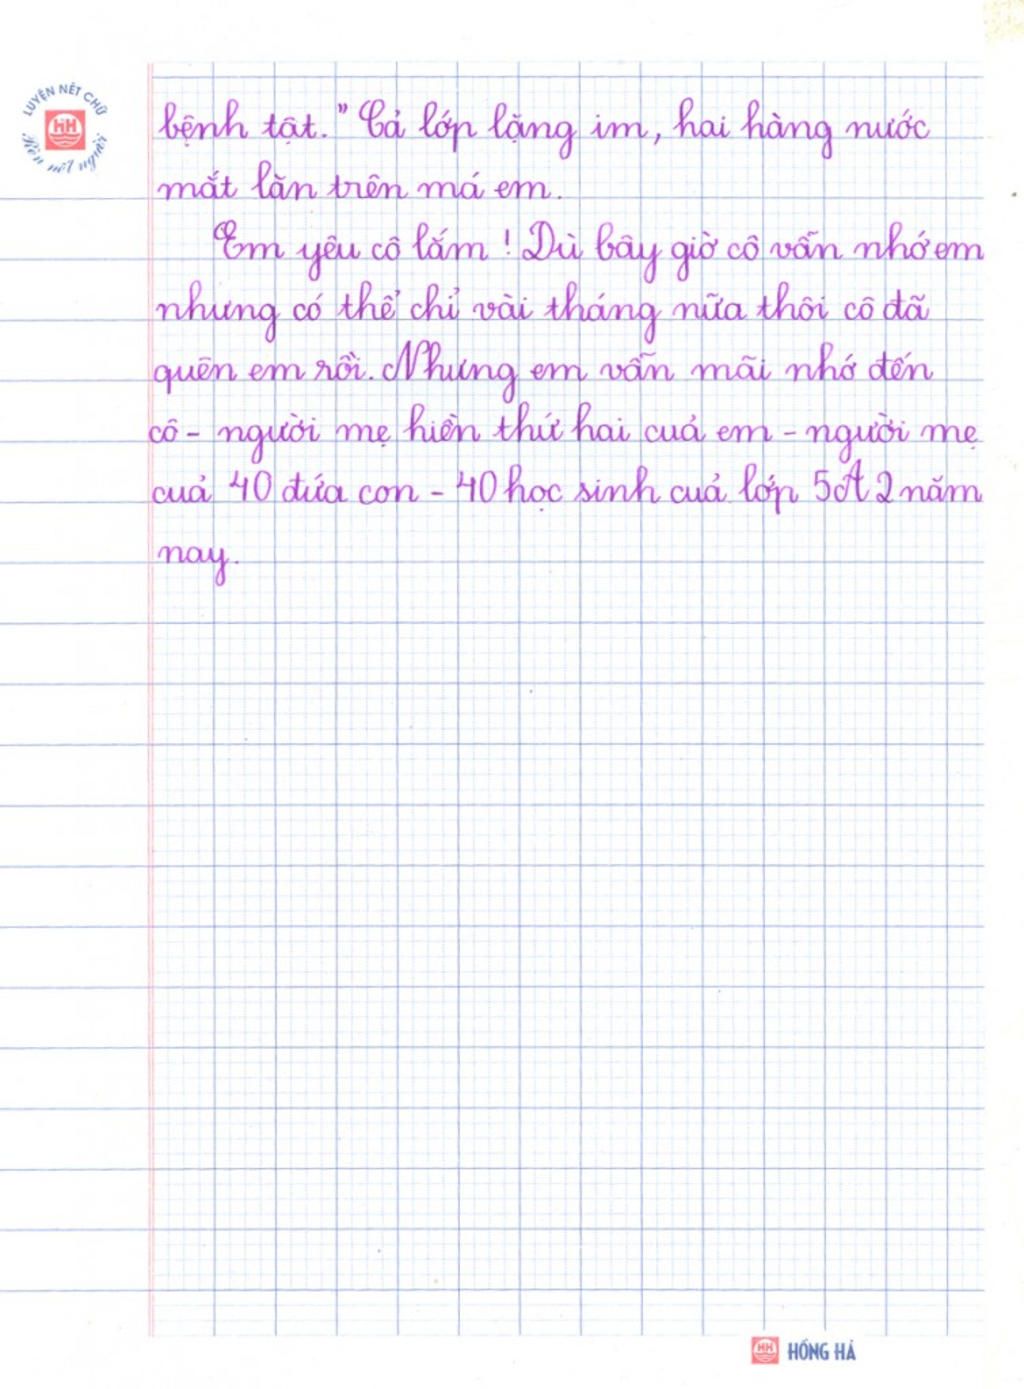 LUYỆN NÉT CHỮ
Rèn nết người
bệnh tật." Cả lớp lặng im, hai hàng nước
mắt lăn trên má em.
Em yêu cô lắm ! Dù bây giờ cô vẫn nhớ em
nhưng có thể chỉ vài tháng nữa thôi cô đã
quên em rồi. Nhưng em vẫn mãi nhớ đến
cô - người mẹ hiền thứ hai cuả em - người mẹ
cuả 40 đứa con - 40 học sinh cuả lớp 5A2 năm
nay.
HH HỒNG HÀ